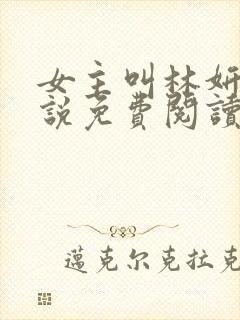 女主叫林妍
説免費閱讀
邁克尔克拉克